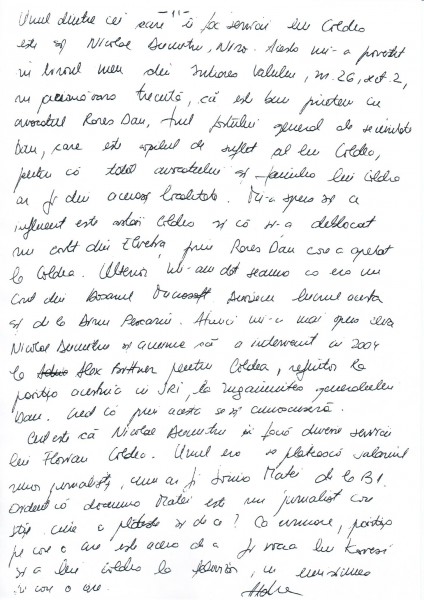 -11-
Unul dintre cei care îi fac servicii lui Coldea
este și Nicolae Dumitru, Niro. Acesta mi-a povestit
în biroul meu din Intrarea Valului, nr. 26, sect. 2,
în primăvara trecută, că este bun prieten cu
avocatul Rares Dan, fiul fostului general de securitate
Dan, care este copilul de suflet al lui Coldea,
pentru că tatăl avocatului și părintele lui Coldea
ar fi din aceeași localitate. Mi-a spus și ce
influent este astăzi Coldea și că și-a deblocat
un cont din Elveția prin Rares Dan care a apelat
la Coldea. Ulterior, mi-am dat seama că era un
cont din Dosarul Microsoft. Auzisem lucrul acesta
și de la Dinu Pescariu. Atunci mi-a mai spus
Nicolae Dumitru și anume că a intervenit în 2004
la Alex Bittner pentru Coldea, referitor la
poziția acestuia în SRI, la rugămintea generalului
Dan. Cred că prin acesta se și cunoscuseră.
Cert este că Nicolae Dumitru îi făcea diverse servicii
lui Florian Coldea. Unul era să plătească salariul
unor jurnaliști, cum ar fi Sorina Matei de la B1.
Evident că doamna Matei este un jurnalist care
știe cine o plătește și de ce? Ca urmare, poziția
pe care o are este aceea de a fi vocea lui Kovesi
și a lui Coldea la televiziune, în emisiunea
pe care o are.